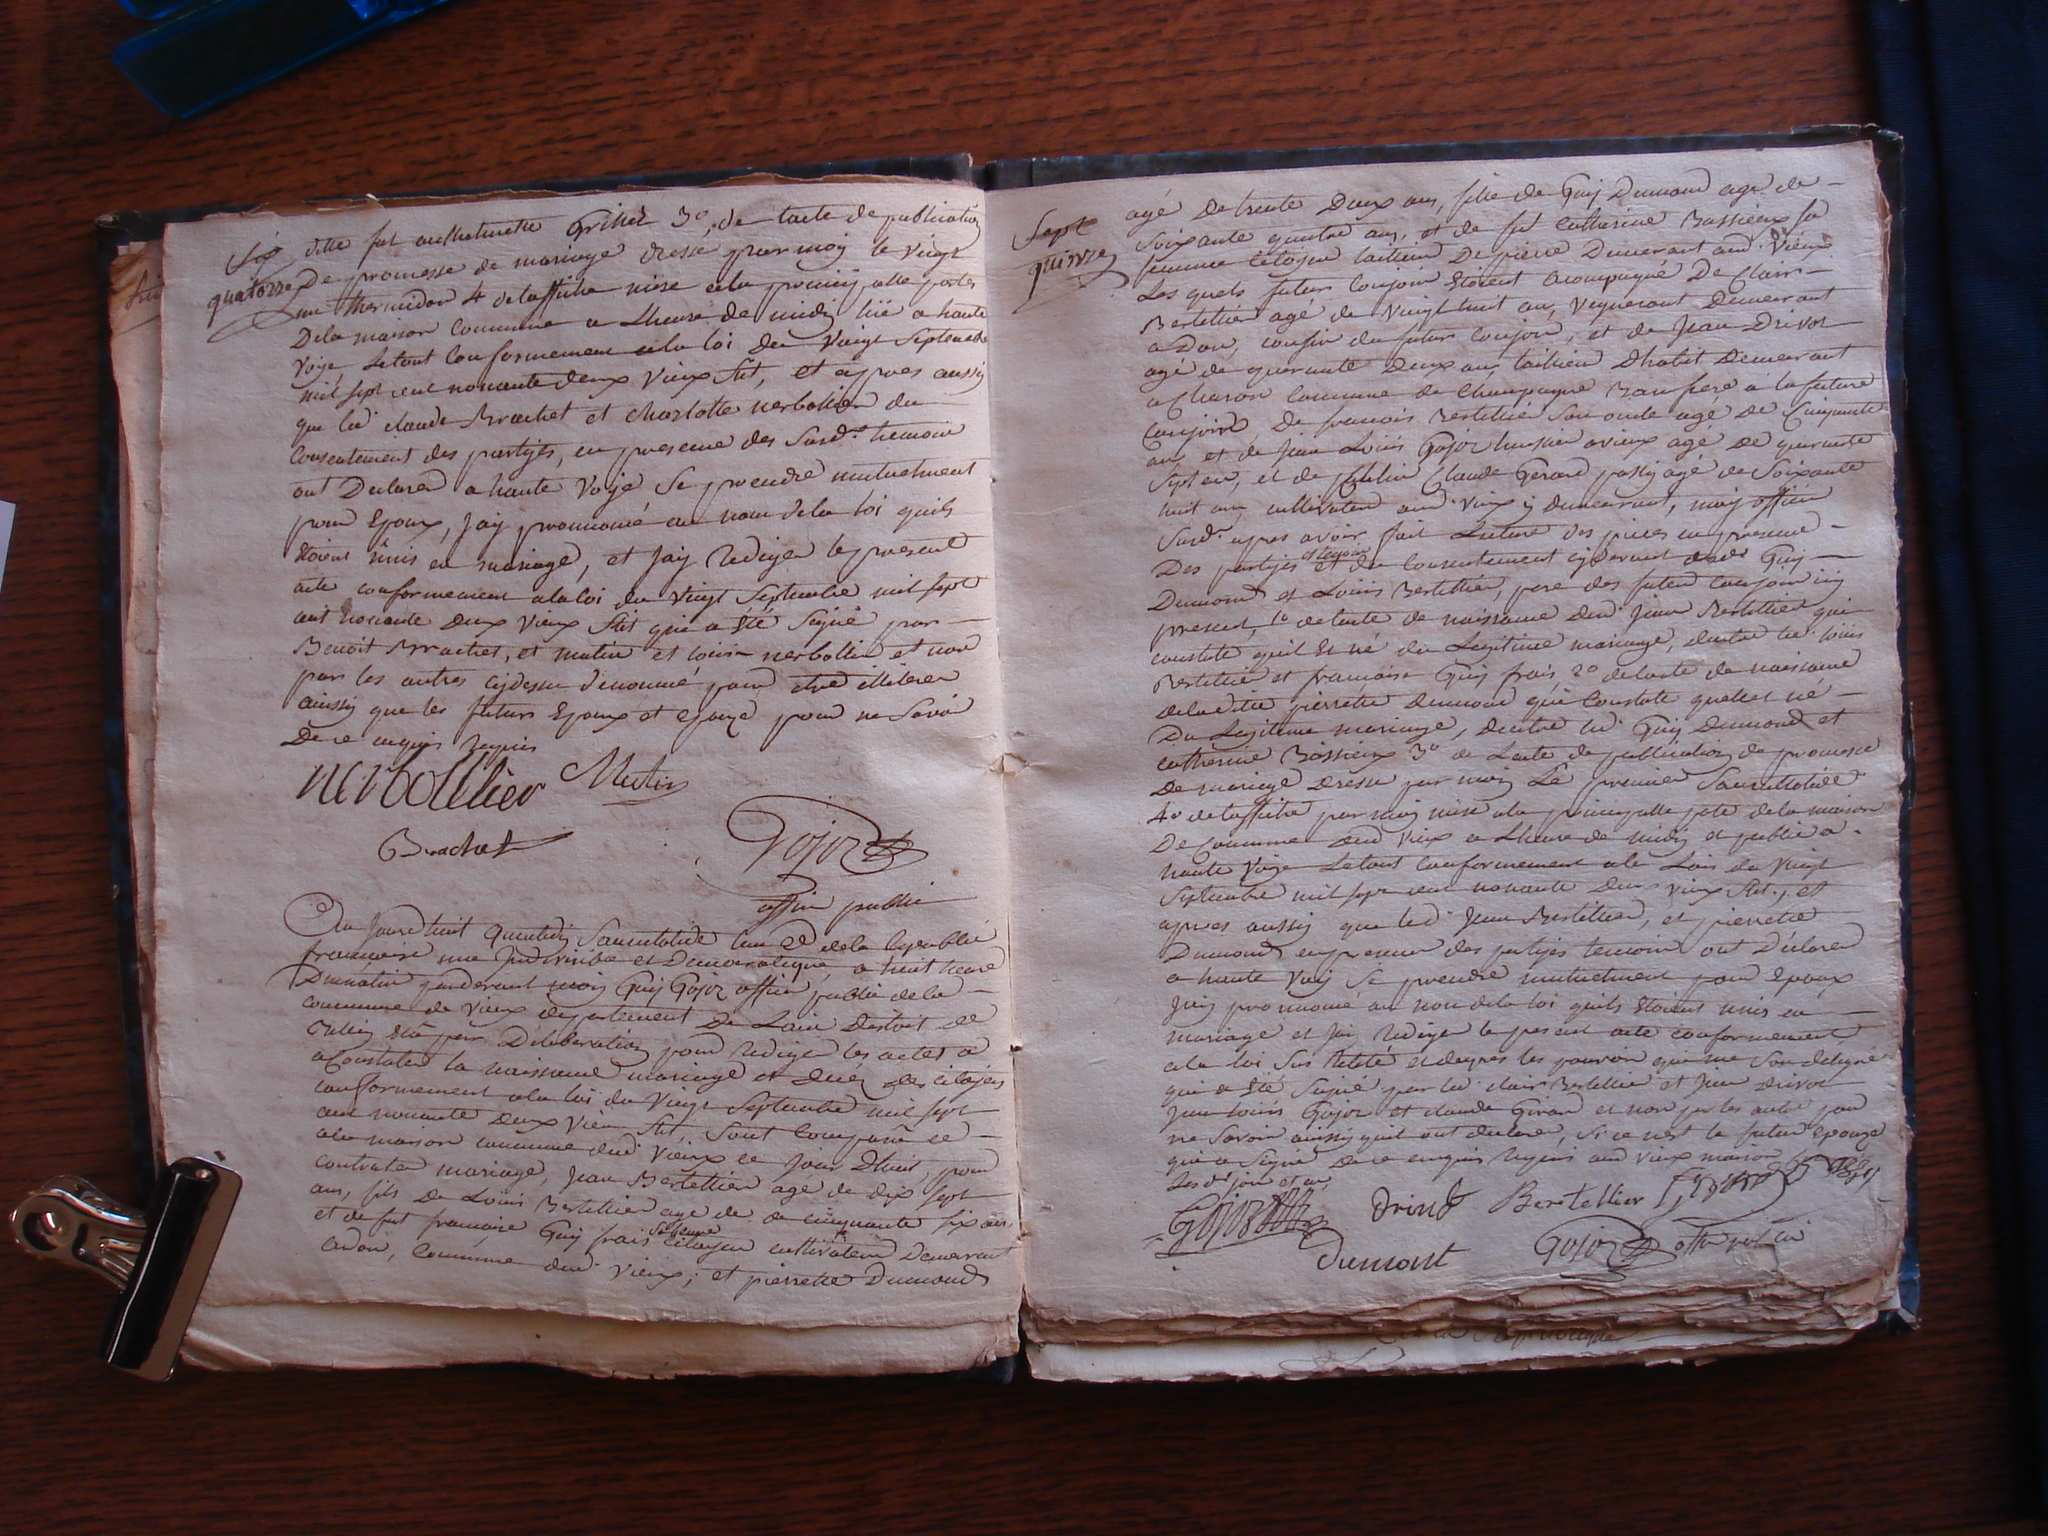 Six
quatorze
ditte fut anthelmette Grillet 3°, de lacte de publication
De promesse de mariage dressé par moy le vingt
un thermidor 4 de laffiche mise a la principalle porte
De la maison commune a Lheure de midy lüe a haute
voye le tout conformement a la loi du vingt Septembre
mil sept cent nonante deux vieux Stil, et apres aussy
que led claude Brachet et charlotte nerbollier du
consentement des partyes, en presence des susd. temoins
ont Declarer a haute voye se prendre mutuelment
pour Epoux, Jay prononcé au nom de la loi quils
Etoient unis en mariage, et Jay rediger le present
acte conformement a la loi du vingt Septembre mil sept
cent nonante deux vieux Stil qui a été signé par
Benoit Brachet, et Mutin et Louis nerbollier et non
par les autres cydessu denommé pour etre illiterer
ainsy que les futurs Epoux et epouze pour ne savoir
De ce enquis requis
nerbollier Mutin
Brachet
Gojoz
offier public
Au Jourdhuit quintidy Sanculotide Lan 2d de la republic
francaise une Indivisible et Democratique, a huit heure
Du matin pardevant moy Guy Gojoz offier public de la
commune de Vieux departement De Lain Distroit de
Belley élu par Déliberation pour rediger les actes a
Constater la naissance mariage et Décé des citoyen
conformement a la loi du vingt Septembre mil sept
cent nonante deux vieu Stil, sont comparu en
a la maison commune dud. vieux ce jour Dhuit, pour
contracter mariage, Jean Bertellier agé de dix sept
ans, fils De Louis Bertellier age de cinquante six ans
et de fut francaise Guy frais sa femme citoyen cultivateur demeurant
a don, commune dud. vieux; et pierrette Dumond
Sept
quinze
agé De trente Deux ans, fille de Guy Dumond age de
soixante quatre ans, et de fut catherine Bassieux sa
femme citoyen Demeurant aud. Vieux
Les quels futurs conjoin étoient acompagné De Clair
Bertellier agé de vingt huit ans, vigneront Demeurant
a Don, cousin du futurs conjoin, et de Jean Drivot
agé de quarante Deux ans tailleur Dhabit Demeurant
a Charon commune de Champagne Bau frere a la future
Conjoin De francois Bertellié son oncle agé de Cinquante
ans et de Jean Louis Gojoz huissier a vieux agé de quarante
sept an, et de Claude Gerard agé de soixante
huit ans cultivateur aud. vieux y demeurant, moy offier
susd. apres avoir fait Lecture des pieces en presence
Des partyes et temoin et du consentement cydevant desd. Guy
Dumond et Louis Bertellier, pere des futurs conjoin icy
present, 1° de lacte de naissance dud. Jean Bertellier qui
constate quil Est né du Legitime mariage, dentre led. Louis
Bertellier et francaise Guy frais, 2° de lacte de naissance
de la ditte pierrette Dumond qui constate quelle est né
Du Legitime mariage, dentre led Guy Dumond et
catherine Bassieux 3° de Lacte de publication de promesse
De mariage Dressé par moy Le premier Sanculotide
4° de laffiche par moy mise a la principalle pote de la maison
De commune dud Vieux a Lheure de midy et publié a
haute voye Le tout conformement a la Lois du vingt
Septembre mil sept cent nonante deux vieux Stil, et
apres aussy que led. Jean Bertellier, et pierrette
Dumond en presence des partyes temoin ont Déclarer
a haute voy se prendre mutuelment pour Epoux
Jay prononcé au nom de la loi quils étoient unis en
mariage et Jay rediger le present acte conformement
a la loi sus relaté et dapres les pouvoir qui me son delegué
qui a été signé par led. clair Bertellier et Jean Drivot
Jean Louis Gojoz et claude Girard et non par les autre pour
ne savoir ainssy quil ont declarer, si ce nest la futur epouze
qui a signé De ce enquis requis aud vieux maison
Lesd. jour et an
Gojoz Drivot Bertellier Girard
Dumont Gojoz offier public